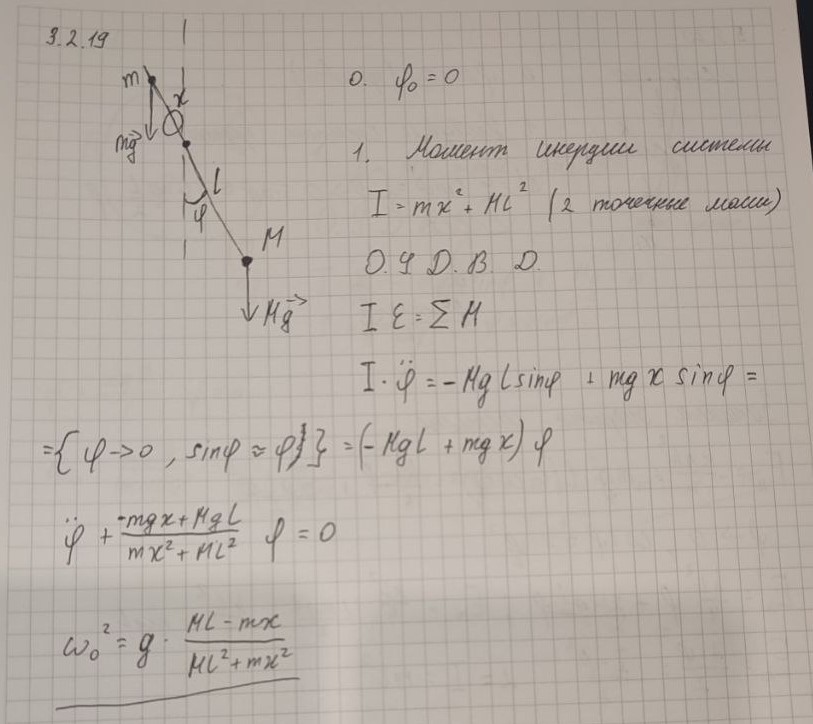 3.2.19
0. φ₀ = 0
m
x
mg
1. Момент инерции системы
l
I = mx² + Ml² (2 точечные массы)
φ
M
О. У Д. В. Д.
Mg
I ε = Σ M
I · φ̈ = -Mg l sinφ + mg x sinφ =
= { φ -> 0, sinφ ≈ φ } = (-Mgl + mgx) φ
φ̈ + (-mgx + Mgl)/(mx² + Ml²) φ = 0
ω₀² = g · (Ml - mx)/(Ml² + mx²)